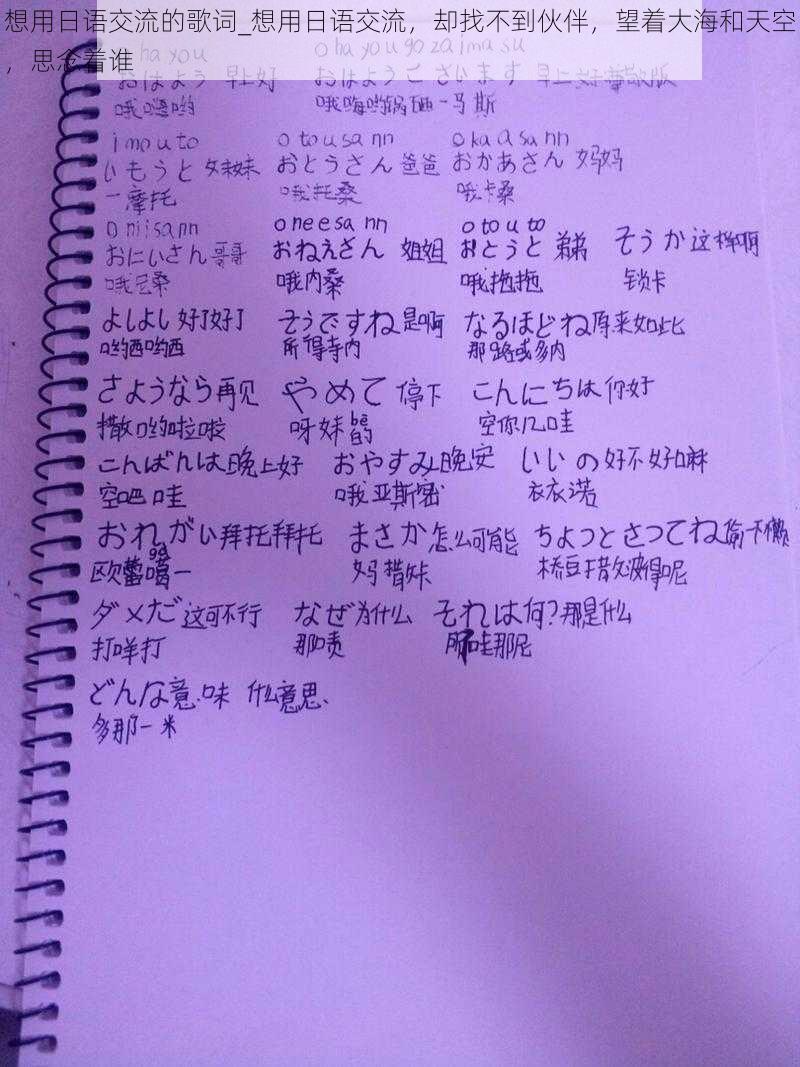 想用日语交流的歌词_想用日语交流，却找不到伙伴，望着大海和天空
，思念着谁
ohayou ohayougozaimasu
おはよう 早上好 おはようございます 早上好尊敬版
哦嗨哟 哦嗨哟锅砸一马斯
imouto otousann okaasann
いもうと 妹妹 おとうさん 爸爸 おかあさん 妈妈
一摩托 哦托桑 哦卡桑
oniisann oneesann otouto
おにいさん 哥哥 おねえさん 姐姐 おとうと 弟弟 そうか 这样啊
哦尼桑 哦内桑 哦拖拖 锁卡
よしよし 好了好了 そうですね 是啊 なるほどね 原来如此
哟西哟西 所得寺内 那路或多内
さようなら 再见 やめて 停下 こんにちは 你好
撒哟啦啦 呀妹 的 空你几哇
こんばんは 晚上好 おやすみ 晚安 いいの 好不好嘛
空吧哇 哦亚斯密 衣衣诺
おれがい 拜托拜托 まさか 怎么可能 ちょっとさつてね 偷下懒
ga
欧蕾噶一 妈撒咔
ダメだ 这可不行 なぜ 为什么 それは何? 那是什么
打咩打 那啧 哇那尼
どんな意味 什么意思、
多那一米